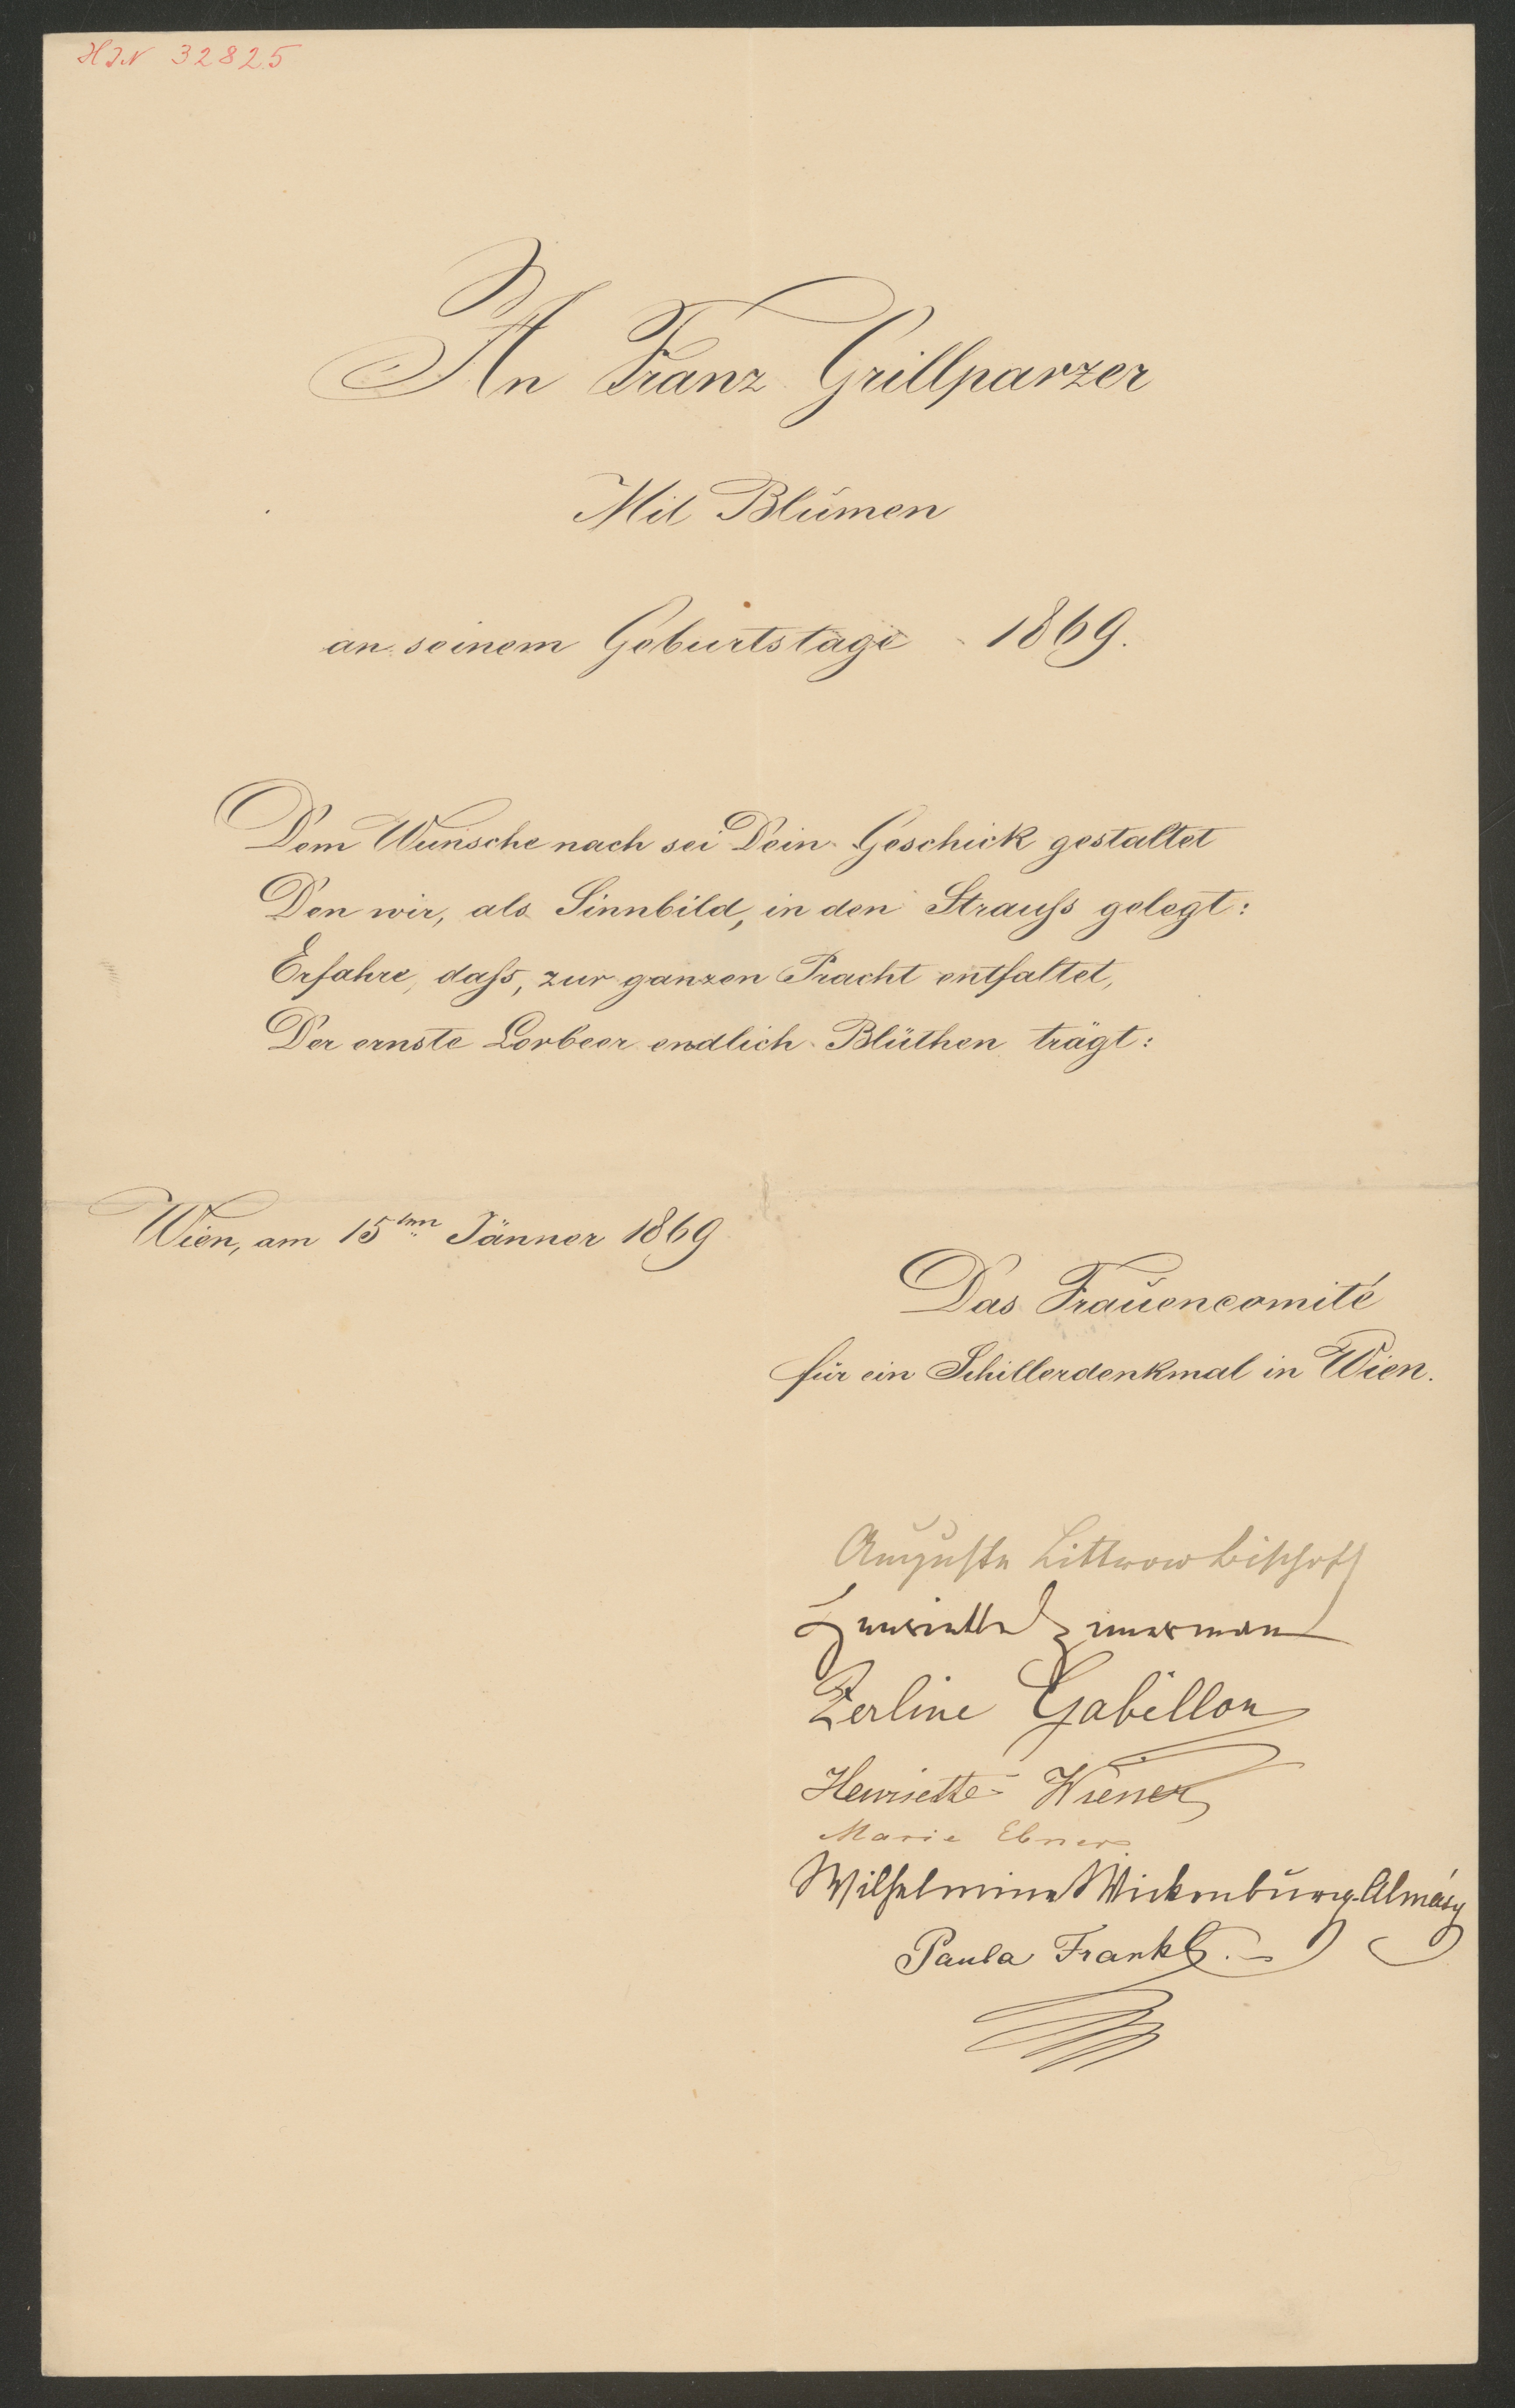 HIN 32825
An Franz Grillparzer
Mit Blumen
an seinem Geburtstage 1869.
Dem Wunsche nach sei Dein Geschick gestaltet
Den wir, als Sinnbild, in den Strauß gelegt:
Erfahre, daß, zur ganzen Pracht entfaltet,
Der ernste Lorbeer endlich Blüthen trägt:
Wien, am 15ten Jänner 1869
Das Frauencomité
für ein Schillerdenkmal in Wien.
Auguste Littrow Bischoff
Henriette Zimerman
Zerline Gabillon
Henriette Wiener
Marie Ebner
Wilhelmine Wickenburg-Almásy
Paula Frankl.